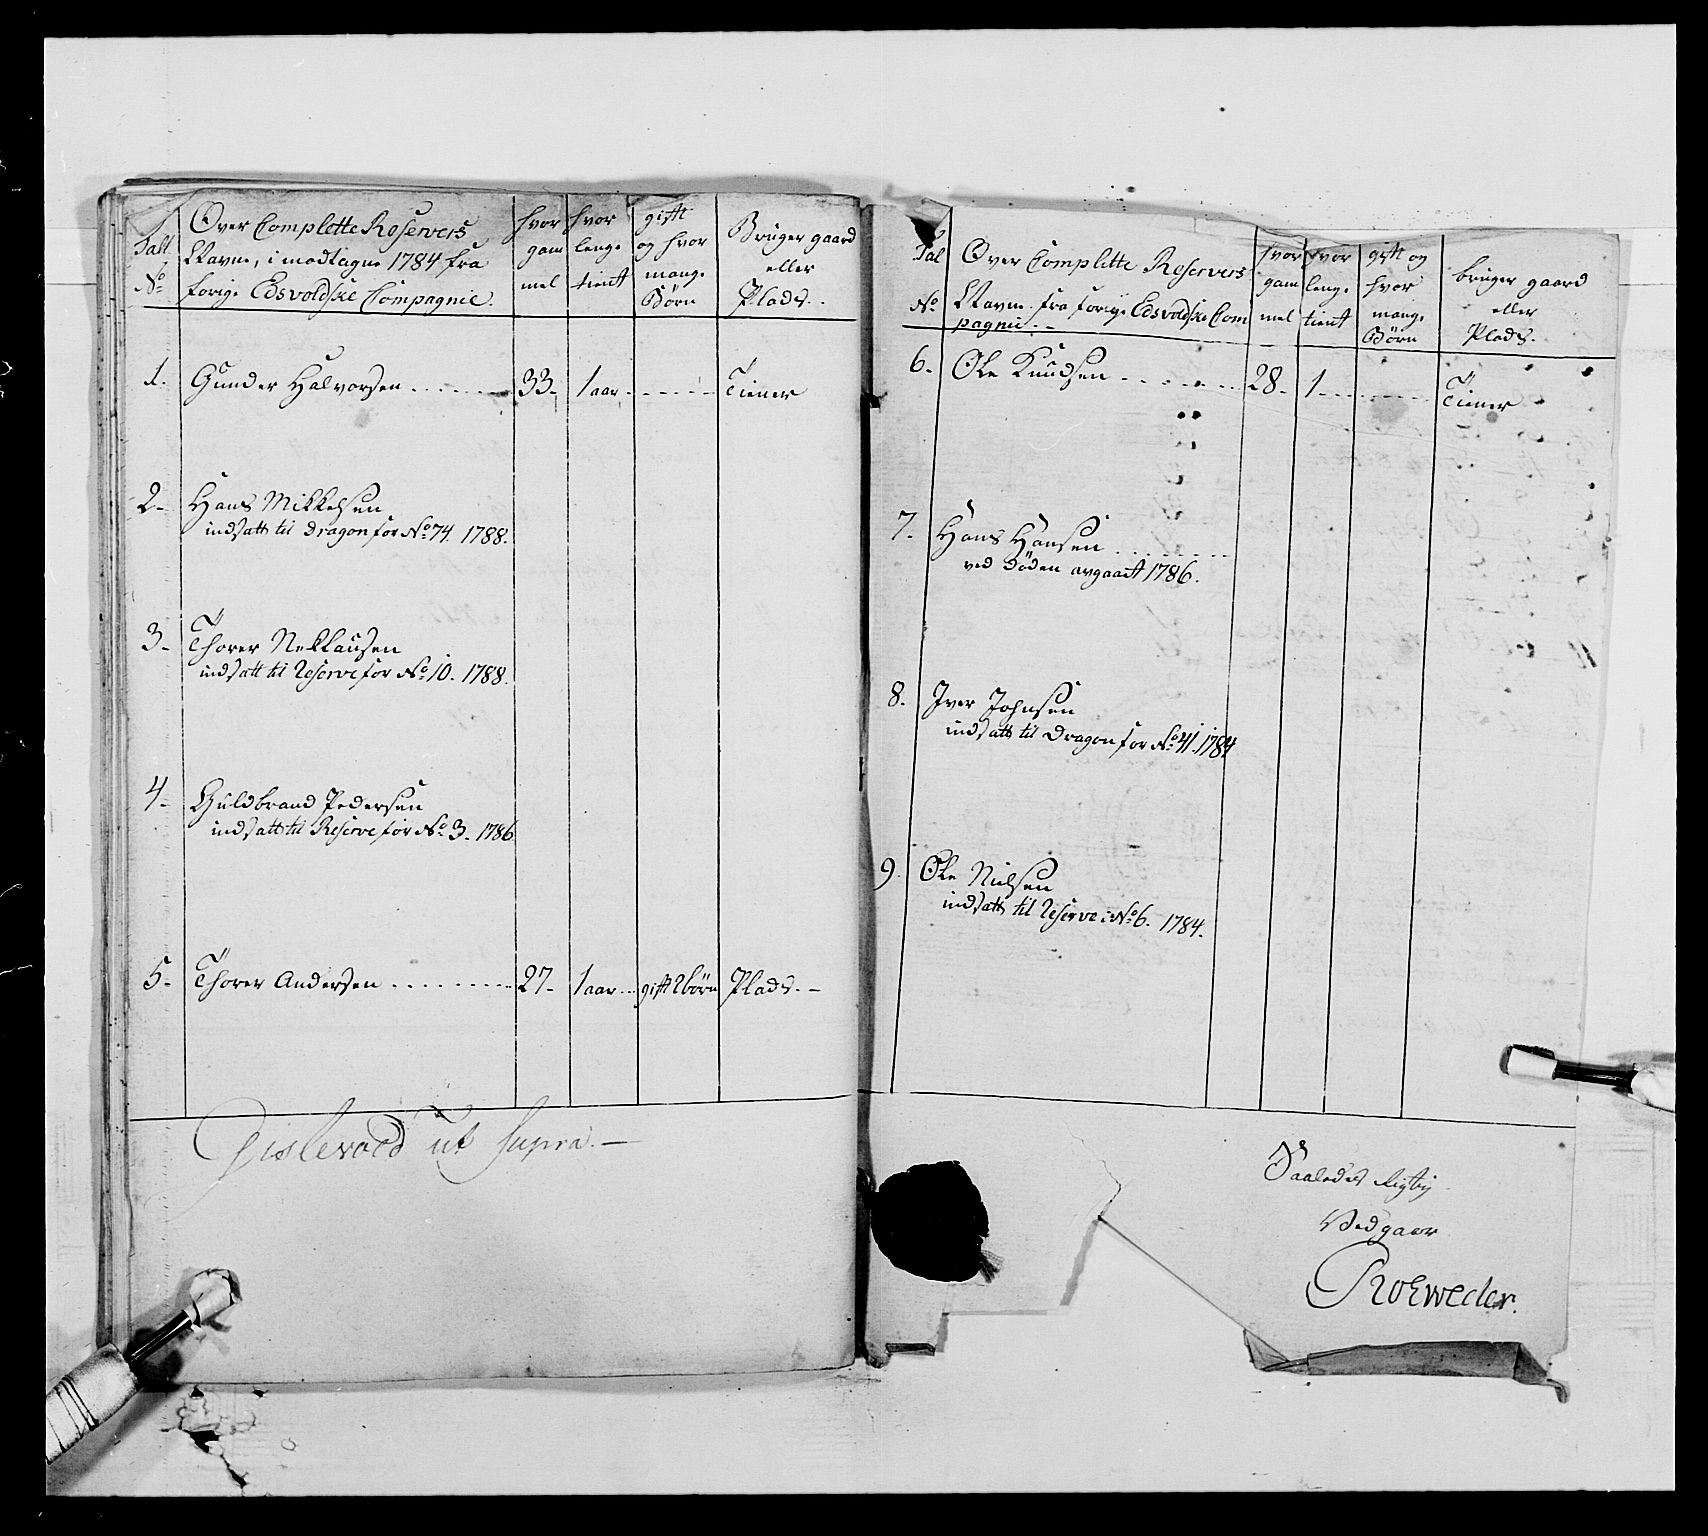 Tall No
Over Complette Reservers
Navne, i modtagne 1784 fra
forige Edsvoldske Compagnie.
hvor gam mel
hvor lenge tient
gift og hvor mange Börn
Bruger gaard eller Plads.
1. Gunder Halvorsen 33 - 1 aar - Tiener
2 - Hans Mikkelsen
indsatt til Dragon for No 74. 1788.
3 - Thorer Nekkausen
indsatt til Reserve for No 10. 1788.
4 - Guldbrand Pedersen
indsatt til Reserve for No 3. 1786
5 - Thorer Andersen 27 - 1 aar gift 2 börn Plads. -
ut Supra. -
Tal No
Over Complette Reservers
Navne fra forige Edsvoldske Com
pagnie. -
hvor gam mel
hvor lenge tient
gift og hvor mange Börn
bruger gaard eller Plads.
6. Ole Knudsen 28 - 1 - Tiener
7. Hans Hansen
ved Döden avgaaet 1786.
8. Iver Johnsen
indsatt til Dragon for No 41. 1784
9. Ole Nielsen
indsatt til Reserve i No 6. 1784.
Saaledes Rigtig
Vedgaar
Roeweder.